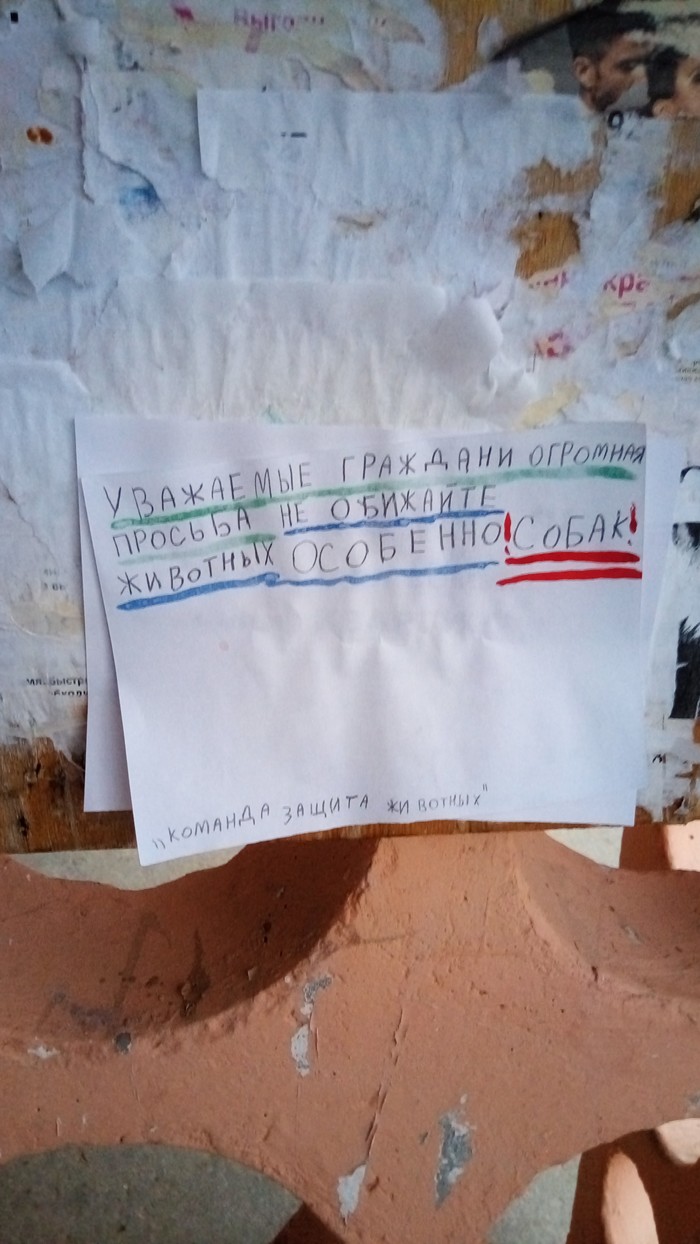 УВАЖАЕМЫЕ ГРАЖДАНИ ОГРОМНАЯ
ПРОСЬБА НЕ ОБИЖАЙТЕ
ЖИВОТНЫХ ОСОБЕННО!СОБАК!
„КОМАНДА ЗАЩИТА ЖИВОТНЫХ"